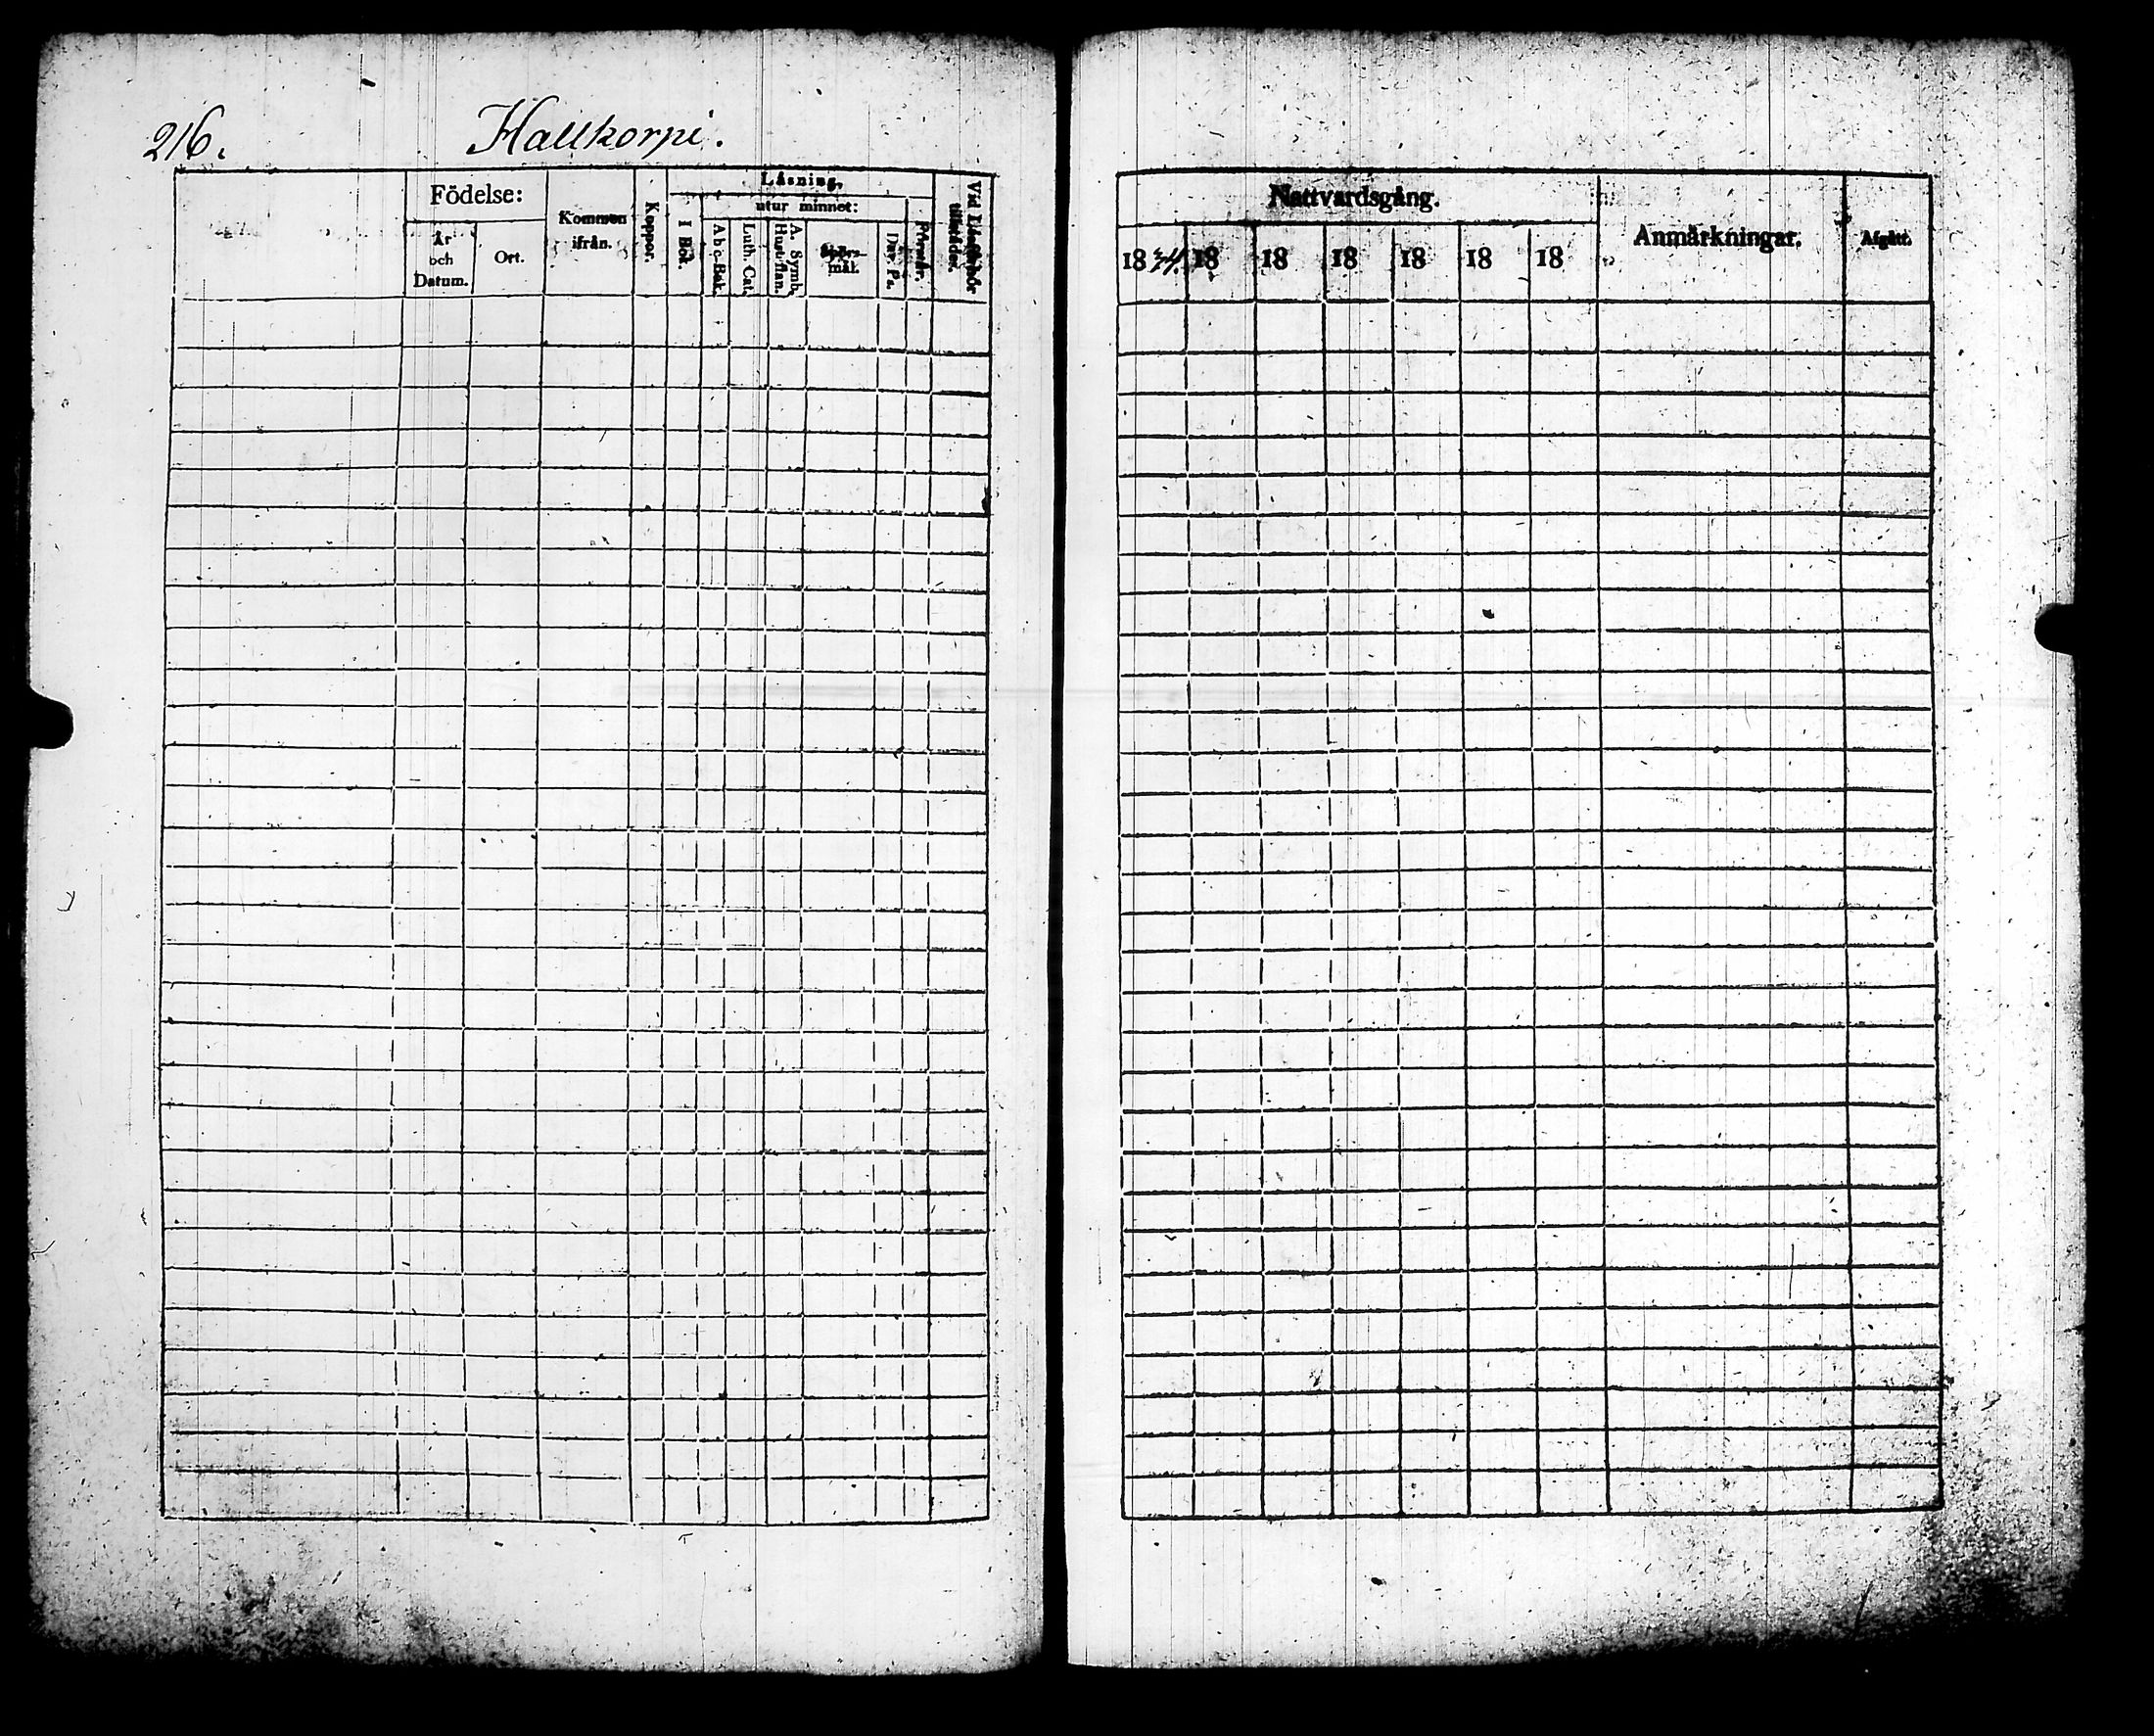 216.
Hallkorpi.
Födelse:
År och Datum.
Ort.
Kommen ifrån.
Koppor.
Läsning.
I Bok.
utur minnet:
A b c-Bok.
Luth. Cat.
A. Symb. Hust.flan.
Spörs-mål.
Dav. Ps.
Förstår.
Nattvardsgång.
1834. 18 18 18 18 18 18
Anmärkningar.
Afgått.